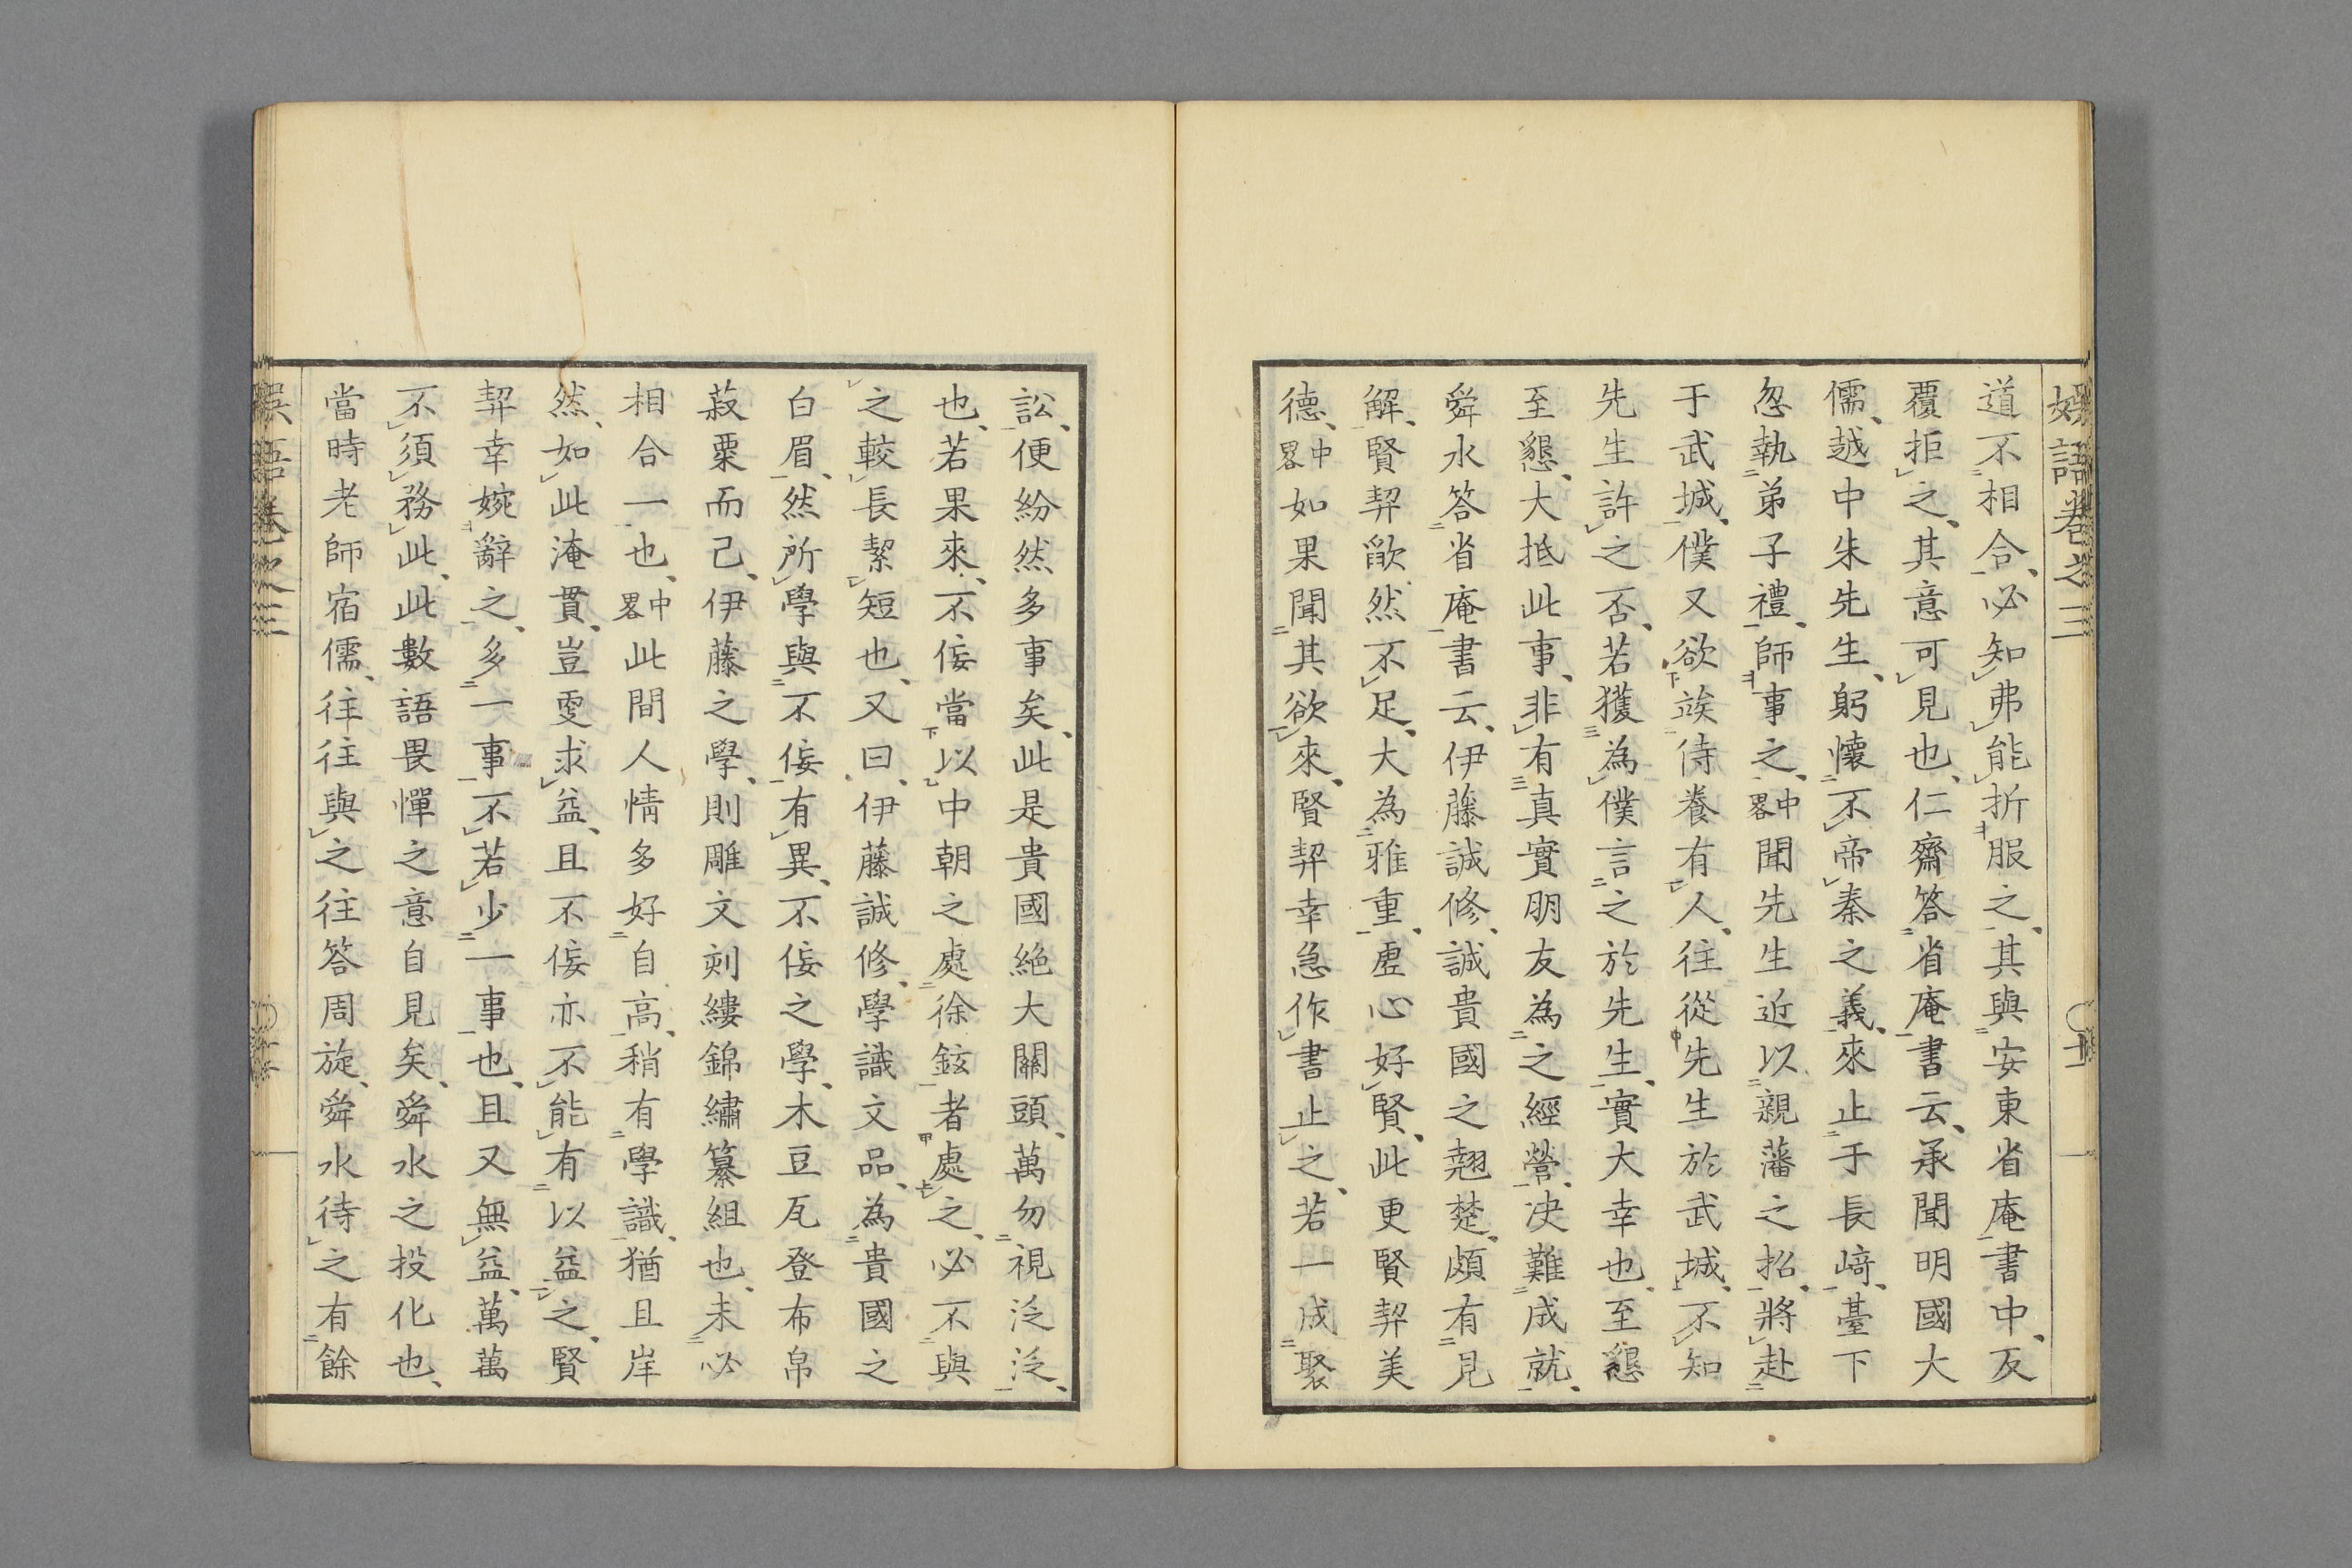 娯語卷之三
道不相合、必知弗能折服之、其與安東省庵書中、反
覆拒之、其意可見也、仁齋答省庵書云、承聞明國大
儒、越中朱先生、躬懷不帝秦之義、來止于長﨑、臺下
忽執弟子禮、師事之、中畧聞先生近以親藩之招、將赴
于武城、僕又欲竢侍養有人、往從先生於武城、不知
先生許之否、若獲為僕言之於先生、實大幸也、至懇
至懇、大抵此事、非有真實朋友為之經營、决難成就、
舜水答省庵書云、伊藤誠修、誠貴國之翹楚、頗有見
解、賢契歆然不足、大為雅重、虛心好賢、此更賢契美
德、中畧如果聞其欲來、賢契幸急作書止之、若一成聚
訟、便紛然多事矣、此是貴國絶大關頭、萬勿視泛泛、
也、若果來、不佞當以中朝之處徐鉉者處之、必不與
之較長絜短也、又曰、伊藤誠修、學識文品、為貴國之
白眉、然所學與不佞有異、不佞之學、木豆瓦登布帛
菽粟而己、伊藤之學、則雕文刻縷錦繡纂組也、未必
相合一也、中畧此間人情多好自高、稍有學識、猶且岸
然、如此淹貫、豈更求益、且不佞亦不能有以益之、賢
契幸婉辭之、多一事不若少一事也、且又無益、萬萬
不須務此、此數語畏憚之意自見矣、舜水之投化也、
當時老師宿儒、往往與之往答周旋、舜水待之有餘
娯語卷之三